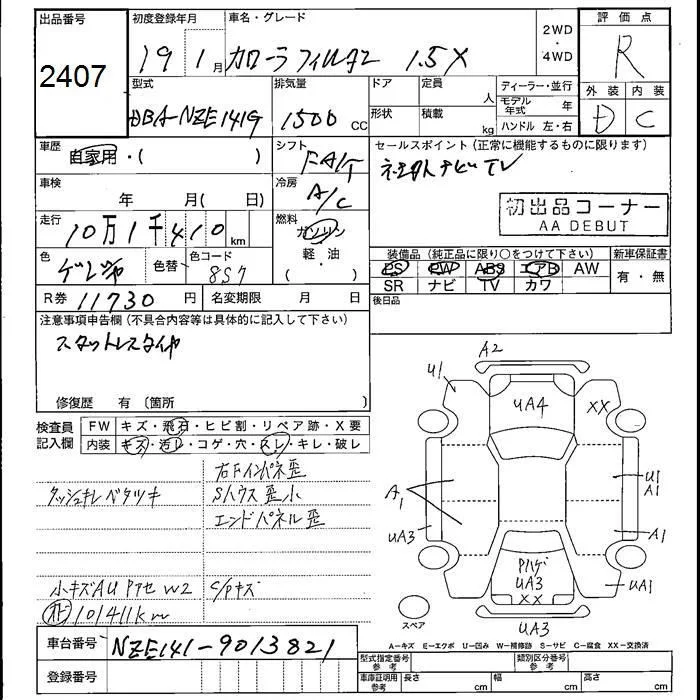 出品番号
2407
初度登録年月
19 1月
車名・グレード
カローラフィルダー 1.5X
2WD
・
4WD
評価点
R
外装 内装
D C
型式
DBA-NZE141G
排気量
1500 CC
ドア
定員
人
形状
積載
kg
ディーラー・並行
モデル年式 年
ハンドル 左・右
車歴
自家用・( )
シフト
FA/T
セールスポイント(正常に機能するものに限ります)
ナビTV
車検
年 月( 日)
冷房
A/C
初出品コーナー
AA DEBUT
走行
10万1千410km
燃料
ガソリン
軽・油
( )
色
色替
色コード
8S7
装備品(純正品に限り○をつけて下さい)
新車保証書
PS PW ABS エアB AW
有・無
SR ナビ TV カワ
R券 11730円
名変期限 月 日
後日品
注意事項申告欄(不具合内容等は具体的に記入して下さい)
スタットレスタイヤ
修復歴 有(箇所 )
検査員
記入欄
FW キズ・飛石・ヒビ割・リペア跡・X要
内装 キズ・汚レ・コゲ・穴・スレ・キレ・破レ
右Fインパネ歪
ダッシュキレベタツキ
Sハウス歪小
エンドパネル歪
小キズAU Pアセ W2
C/Pキズ
101411km
A2
U1
UA4
XX
A1
U1
A1
UA3
A1
Pハゲ
UA3
XX
UA1
UA3
スペア
A-キズ E-エクボ U-凹み W-補修跡 S-サビ C-腐食 XX-交換済
車台番号 NZE141-9013821
登録番号
型式指定番号
参考
類別区分番号
参考
車庫証明用
参考
長さ cm
幅 cm
高さ cm